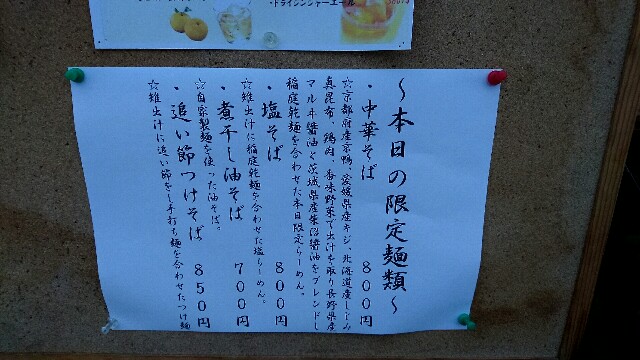 ・ドライジンジャーエール
～本日の限定麺類～
・中華そば　８００円
☆京都府産京鴨、愛媛県産キジ、北海道産しじみ
真昆布、鶏肉、香味野菜で出汁を取り長野県産
マルヰ醤油と茨城県産柴沼醤油をブレンドし
稲庭乾麺を合わせた本日限定らーめん。
・塩そば　８００円
☆雉出汁に稲庭乾麺を合わせた塩らーめん。
・煮干し油そば　７００円
☆自家製麺を使った油そば。
・追い節つけそば　８５０円
☆雉出汁に追い節をし手打ち麺を合わせたつけ麺